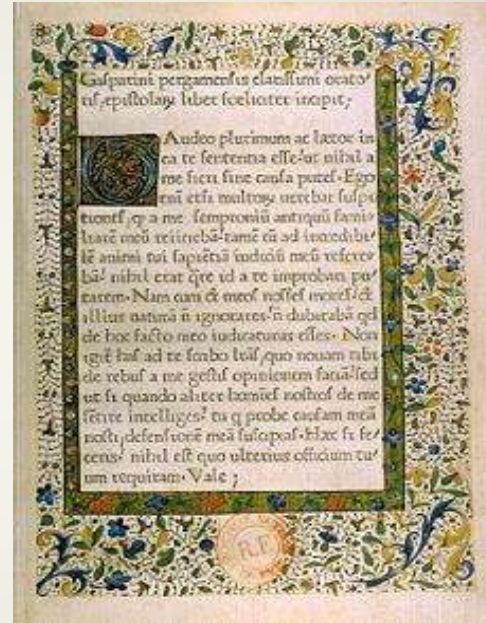 Gasparini pergamensis clarissimi orato
ris, epistolaꝝ liber foeliciter incipit;
Gaudeo plurimum ac lætor in
ea te sententia esse, ut nihil a
me fieri sine causa putes. Ego
eni etsi multoꝝ uerebar suspi
tiones, q̃ a me semproniũ antiquũ fami
liarē meũ reiiciebã, tamē cũ ad incredibi
lē animi tui sapiētiã iudiciũ meũ refere
bã, nihil erat q̃re id a te improbari pu
tarem. Nam cum & meos nosses mores, &
illius naturã nõ ignorares, nõ dubitabã qd
de hoc facto meo iudicaturus esses. Non
igit has ad te scribo lrãs, quo nouam tibi
de rebus a me gestis opinionem faciã, sed
ut si quando aliter homies nostros de me
sētire intelliges, tu q̃ probe causam meã
nosti, defensionē meã suscipias. Hæc si fe
ceris, nihil est quo ulterius officium tu
um requiram. Vale;